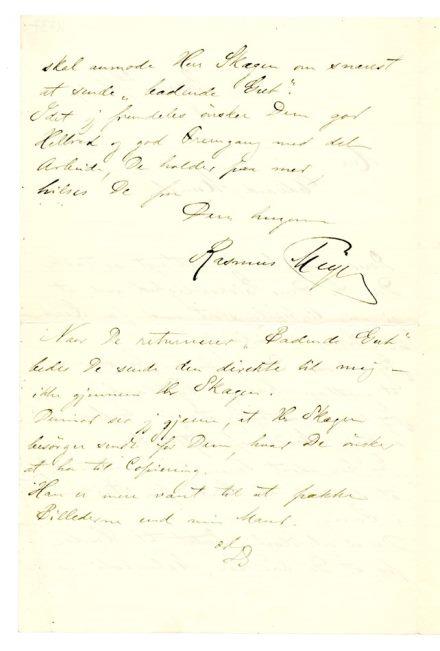 skal anmode Hr. Skagen om snarest
at sende „badende Gut“.
Idet jg fremdeles ønsker Dem god
Helbred og god Fremgang med det
Arbeide, De holder paa med,
hilses De fra
Deres
Rasmus Meyer
Naar De returnerer „Badende Gut“
bedes De sende den direkte til mig –
ikke gjennem Hr Skagen.
Derimod ser jg gjerne, at Hr Skagen
besørger sendt for Dem, hvad De ønsker
at ha til Copiering.
Han er mere vant til at pakke
Billederne end min Mand.